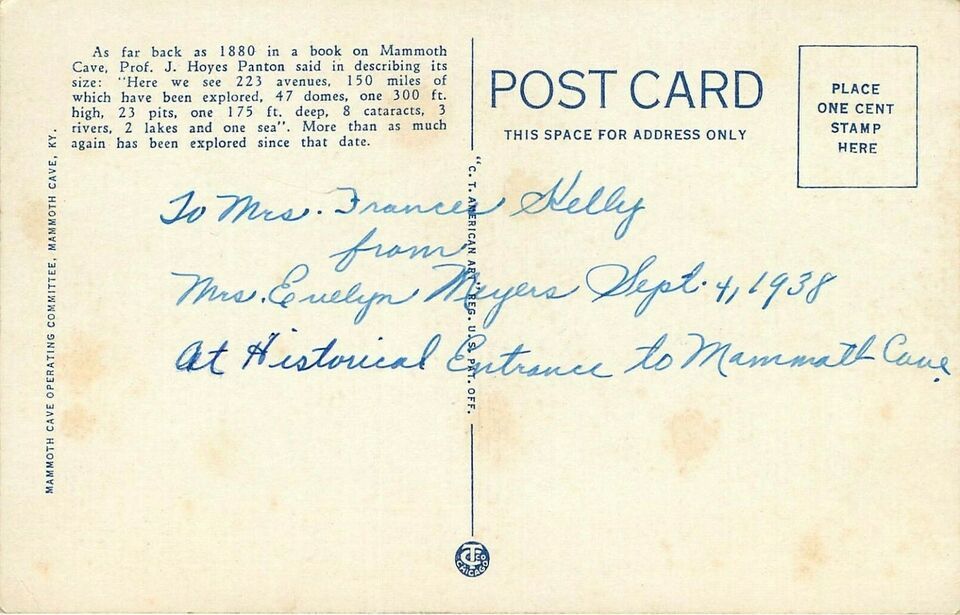 As far back as 1880 in a book on Mammoth
Cave, Prof. J. Hoyes Panton said in describing its
size: "Here we see 223 avenues, 150 miles of
which have been explored, 47 domes, one 300 ft.
high, 23 pits, one 175 ft. deep, 8 cataracts, 3
rivers, 2 lakes and one sea". More than as much
again has been explored since that date.
MAMMOTH CAVE OPERATING COMMITTEE, MAMMOTH CAVE, KY.
POST CARD
THIS SPACE FOR ADDRESS ONLY
PLACE
ONE CENT
STAMP
HERE
"C. T. AMERICAN ART" REG. U.S. PAT. OFF.
To Mrs. Frances Kelly
from
Mrs. Evelyn Meyers Sept. 4, 1938
At Historical Entrance to Mammoth Cave.
CT CO
CHICAGO